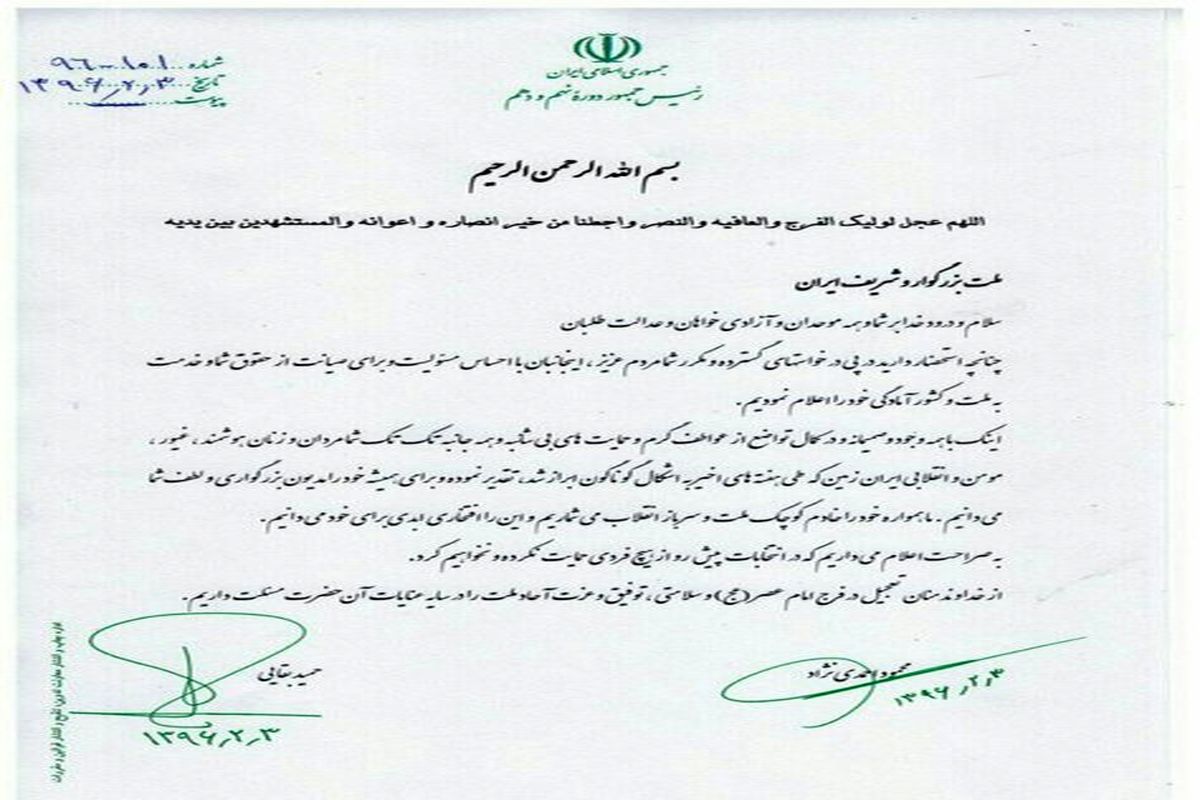 جمهوری اسلامی ایران
رئیس جمهور دورهٔ نهم و دهم
شماره ۹۶-۱۰۱
تاریخ ۱۳۹۶/۲/۳
پیوست
بسم الله الرحمن الرحیم
اللهم عجل لولیک الفرج والعافیه والنصر واجعلنا من خیر انصاره و اعوانه والمستشهدین بین یدیه
ملت بزرگوار و شریف ایران
سلام و درود خدا بر شما و همه موحدان و آزادی خواهان و عدالت طلبان
چنانچه استحضار دارید در پی درخواستهای گسترده و مکرر شما مردم عزیز ، اینجانبان با احساس مسئولیت و برای صیانت از حقوق شما و خدمت
به ملت و کشور آمادگی خود را اعلام نمودیم.
اینک با همه وجود و صمیمانه و در کمال تواضع از عواطف گرم و حمایت های بی شائبه و همه جانبه تک تک شما مردان و زنان هوشمند ، غیور ،
مومن و انقلابی ایران زمین که طی هفته های اخیر به اشکال گوناگون ابراز شد، تقدیر نموده و برای همیشه خود را مدیون بزرگواری و لطف شما
می دانیم . ما همواره خود را خادم کوچک ملت و سرباز انقلاب می شماریم و این را افتخاری ابدی برای خود می دانیم.
به صراحت اعلام می داریم که در انتخابات پیش رو از هیچ فردی حمایت نکرده و نخواهیم کرد.
از خداوند منان تعجیل در فرج امام عصر (عج) و سلامتی ، توفیق و عزت آحاد ملت را در سایه عنایات آن حضرت مسئلت داریم.
محمود احمدی نژاد
۱۳۹۶/۲/۳
حمید بقایی
۱۳۹۶/۲/۳